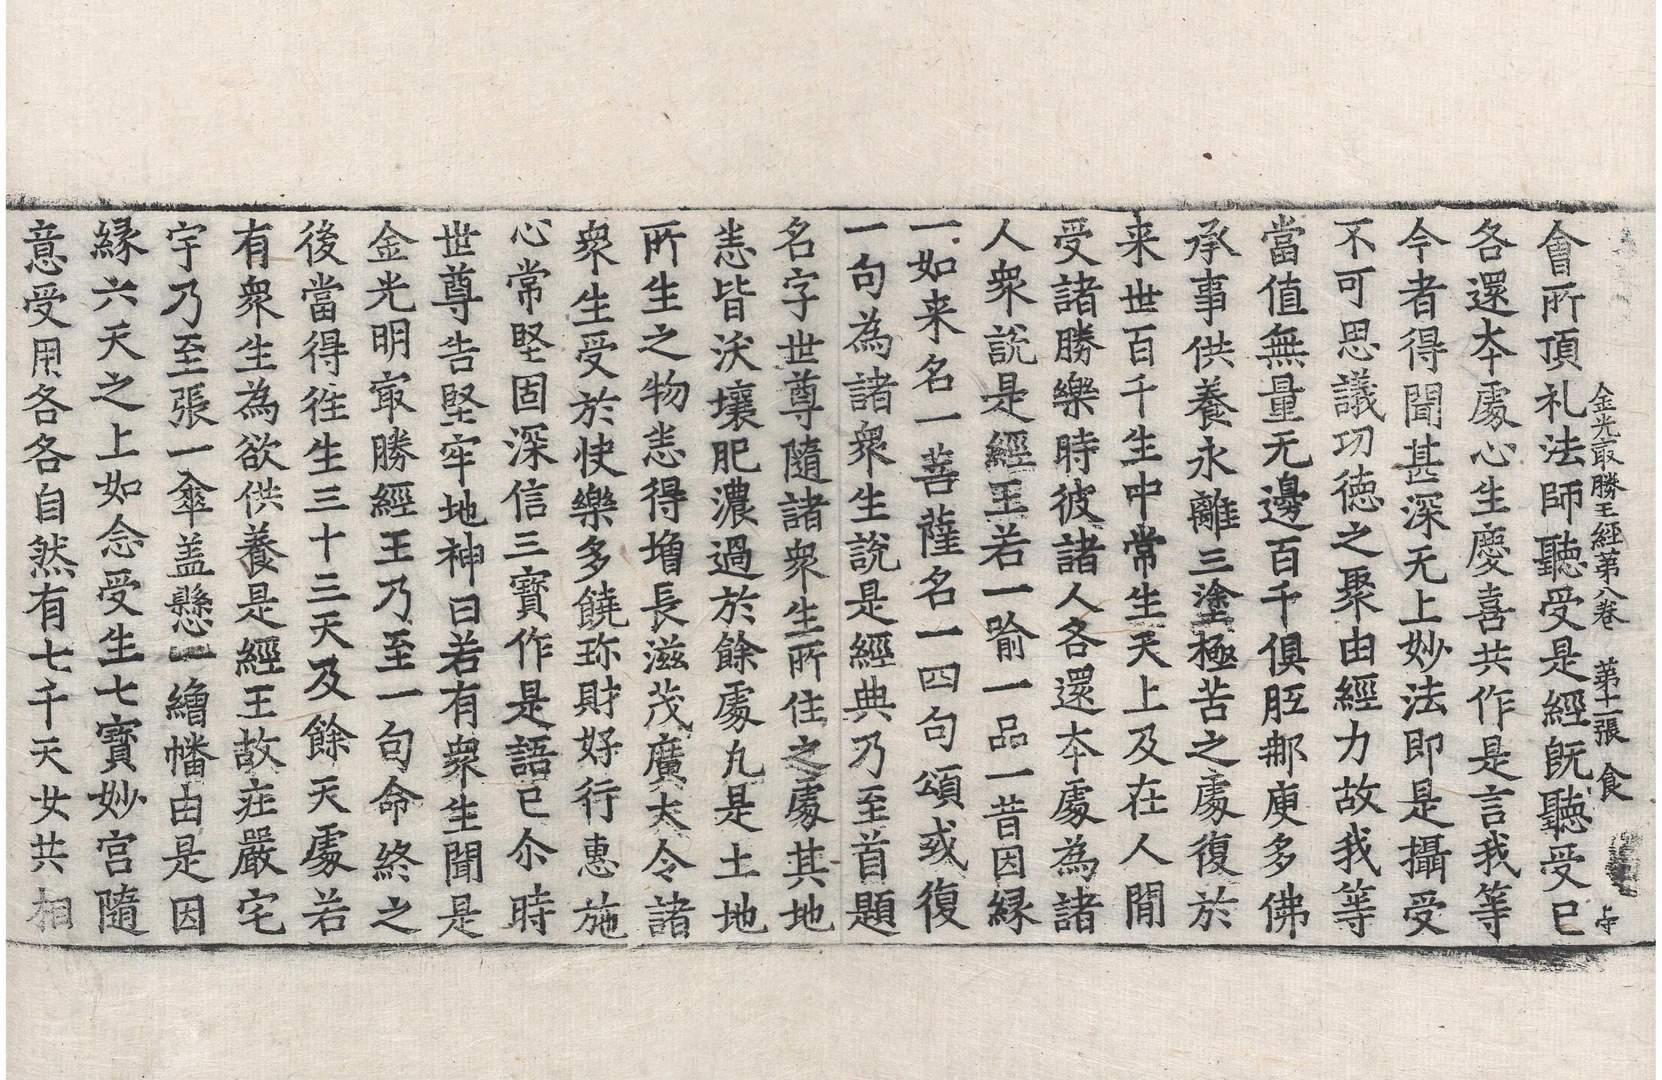 金光㝡勝王經第八卷　第十一張　食
會所頂礼法師聽受是經旣聽受已
各還夲處心生慶喜共作是言我等
今者得聞甚深无上妙法即是攝受
不可思議功德之聚由經力故我等
當值無量无邊百千俱胝𨙻庾多佛
承事供養永離三塗極苦之處復於
来世百千生中常生天上及在人間
受諸勝樂時彼諸人各還夲處為諸
人衆說是經王若一喻一品一昔因緣
一如来名一菩薩名一四句頌或復
一句為諸衆生說是經典乃至首題
名字世尊隨諸衆生所住之處其地
悉皆沃壤肥濃過於餘處凡是土地
所生之物悉得增長滋茂廣大令諸
衆生受於快樂多饒珎財好行惠施
心常堅固深信三寶作是語已尒時
世尊告堅牢地神曰若有衆生聞是
金光明㝡勝經王乃至一句命終之
後當得徃生三十三天及餘天處若
有衆生為欲供養是經王故庄嚴宅
宇乃至張一傘盖懸一繒幡由是因
緣六天之上如念受生七寶妙宮隨
意受用各各自然有七千天女共相